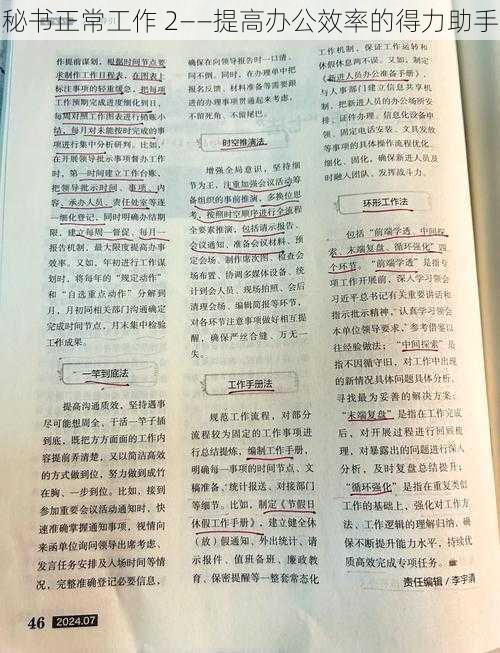 秘书正常工作 2——提高办公效率的得力助手
作提前谋划。根据时间节点要
求制作工作日程表，在图表上
标注事项的轻重缓急，把每项
工作按照预定完成进度细化到日，
每周对照工作图表进行销账小
结，每月对未能按时完成的事
项进行集中分析研判。比如，
在开展领导批示事项督办工作
时，第一时间建立工作台账、
把领导批示时间、事项、内
容、承办人员、责任处室等逐
一细化登记，同时明确办结期
限，建立每周一督促、每月一
报告机制，最大限度提高办事
效率。又如，年初进行工作谋
划时，将每年的“规定动作”
和“自选重点动作”分解到
月，月初同相关部门沟通确定
完成时间节点，月末集中检验
工作成果。
一竿到底法
提高沟通质效，坚持遇事
尽可能想周全、干活一竿子插
到底，既把方方面面的工作内
容提前弄清楚，又以简洁高效
的方式做到位，努力做到成竹
在胸、一步到位。比如，接到
参加重要会议活动通知时，快
速准确掌握通知事项，视情向
来函单位询问领导出席考虑、
发言任务安排及人场时间等情
况，完整准确登记必要信息，
确保在向领导报告时一口清、
问不倒。同时，在办理单中把
报名反馈、材料准备等需要跟
进的办理事项贯通起来考虑，
不留死角、不留尾巴。
时空推演法
增强全局意识，坚持细
节为王，注重加强会议活动筹
备组织的事前推演，多换位思
考，按照时空顺序进行全流程
全要素推演，包括请示报告、
会议通知、准备会议材料、预
定会场、制作席次图、检查会
场布置、协调多媒体设备、统
计到会人员、现场拍照、会后
清理会场、编辑简报等环节，
对各环节注意事项做好相互提
醒，确保严丝合缝、万无一
失。
工作手册法
规范工作流程，对部分
流程较为固定的工作事项进
行总结提炼，编制工作手册，
明确每一事项的时间节点、文
稿准备、统计报送、对接部门
等细节。比如，制定《节假日
休假工作手册》，建立健全休
（放）假通知、外出统计、请
示报件、值班备班、廉政教
育、保密提醒等一整套常态化
工作机制，保证工作运转和
休假休息两不误。又如，制作
《新进人员办公准备手册》，
与人事部门建立信息共享机
制，把新进人员的办公场所安
排、证件办理、信息化设备申
领、固定电话安装、文具发放
等事项的具体操作流程优化、
细化、固化，确保新进人员及
时融入团队、发挥战斗力。
环形工作法
包括“前端学透、中间探
索、末端复盘、循环强化”四
个环节。“前端学透”是指专
项工作开展前，深入学习领会
习近平总书记有关重要讲话和
指示批示精神，认真学习领会
本单位领导要求，参考借鉴以
往经验做法；“中间探索”是
指不因循守旧，对工作中出现
的新情况具体问题具体分析，
寻找最为妥善的解决方案；
“末端复盘”是指在工作完成
后，对开展过程进行回顾梳
理，对暴露出的问题进行深入
分析，及时复盘总结提升；
“循环强化”是指在重复类似
工作的基础上，强化对工作方
法、工作逻辑的理解归纳，确
保不断提升能力水平，持续优
质高效完成专项任务。
责任编辑/李宇清
46 2024.07